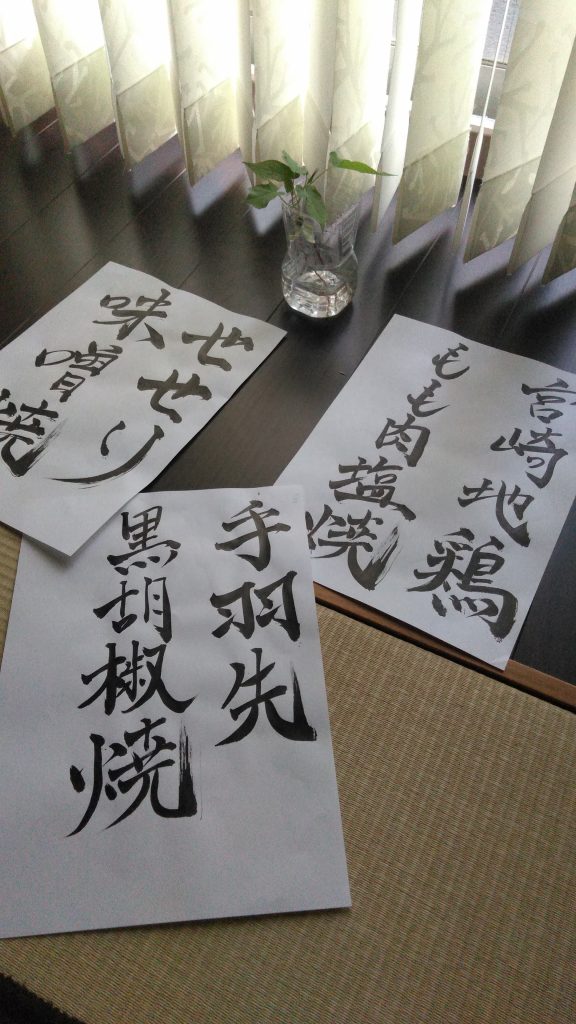 せせり
味噌焼
宮崎地鶏
もも肉塩焼
手羽先
黒胡椒焼